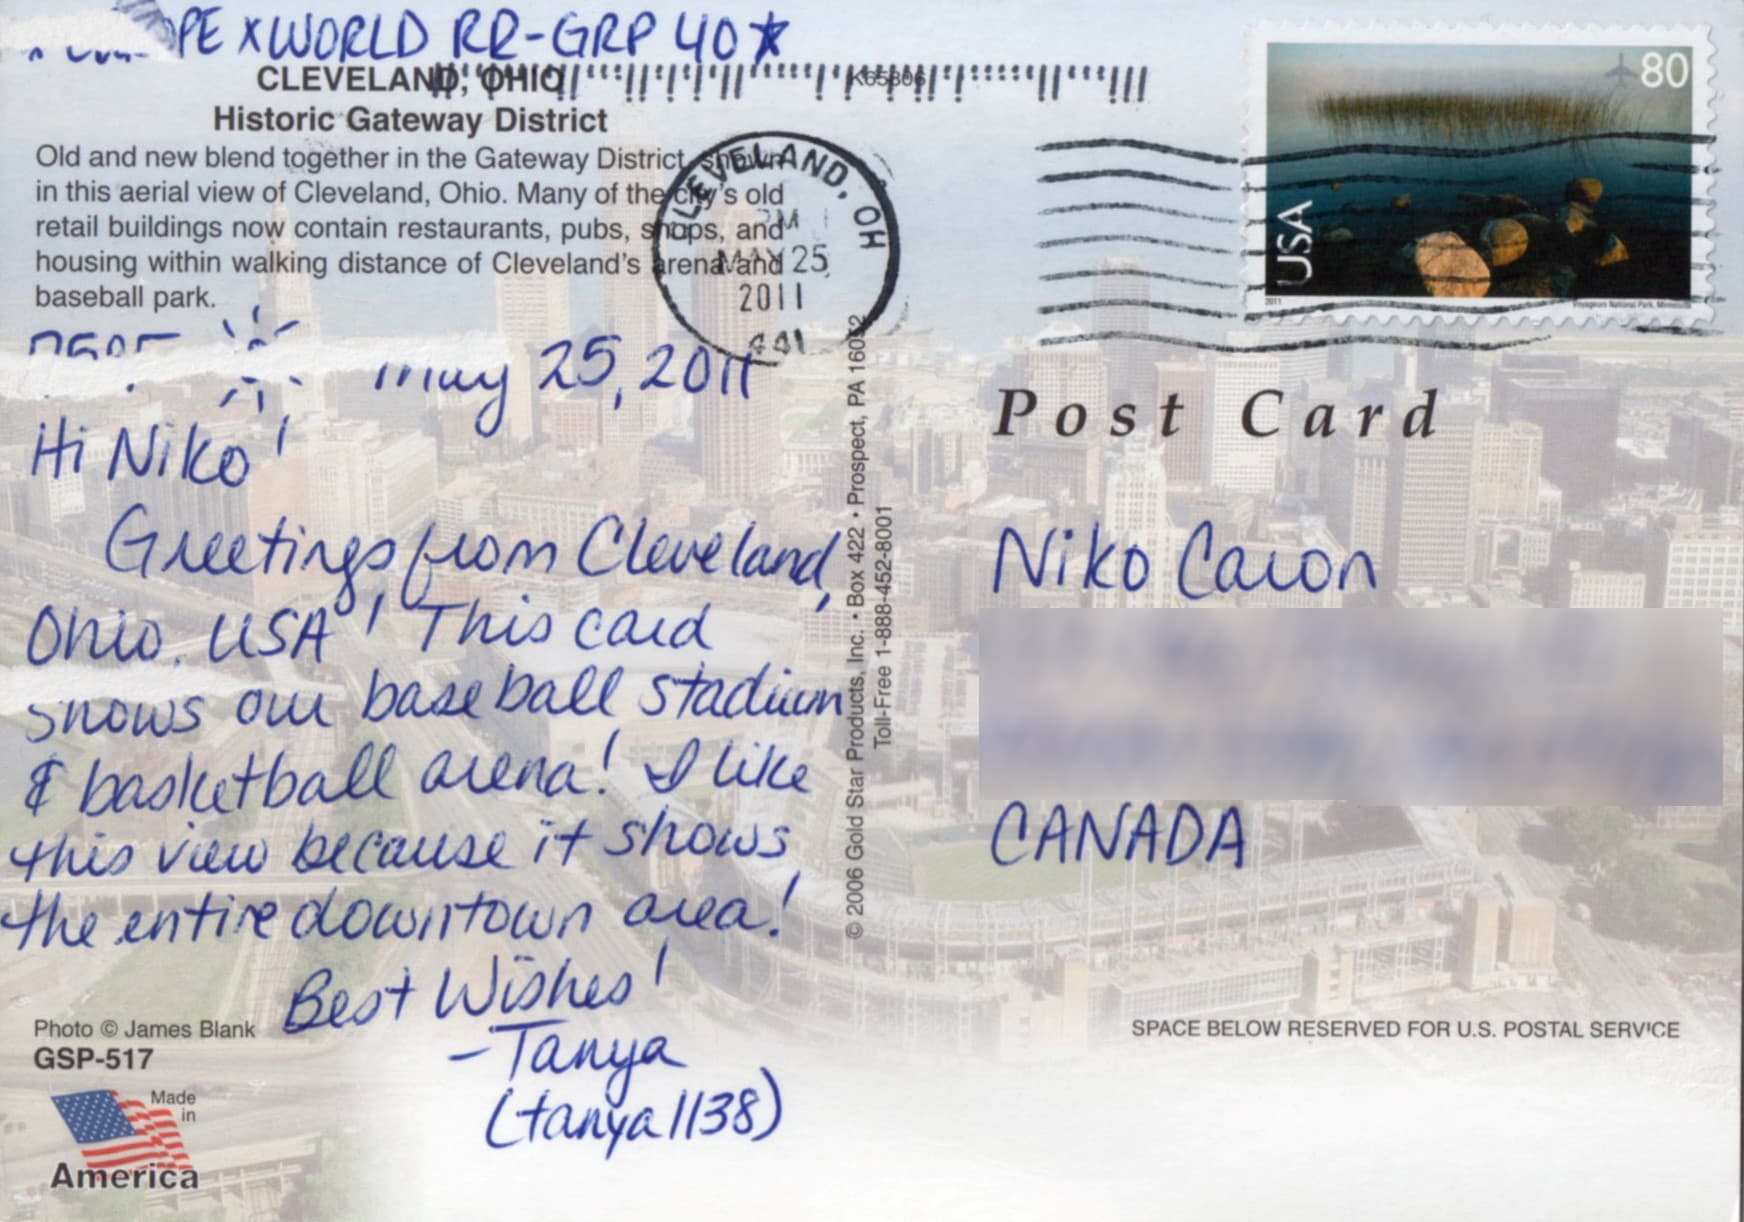 PE x WORLD RR-GRP 40★
CLEVELAND, OHIO
K65806
Historic Gateway District
Old and new blend together in the Gateway District, shown
in this aerial view of Cleveland, Ohio. Many of the city's old
retail buildings now contain restaurants, pubs, shops, and
housing within walking distance of Cleveland's arena and
baseball park.
CLEVELAND, OH
PM
MAY 25
2011
441
80
USA
2011
Voyageurs National Park, Minnesota
May 25, 2011
Hi Niko!
Greetings from Cleveland,
Ohio, USA! This card
shows our baseball stadium
& basketball arena! I like
this view because it shows
the entire downtown area!
Best Wishes!
-Tanya
(tanya1138)
Photo © James Blank
GSP-517
Made
in
America
© 2006 Gold Star Products, Inc. • Box 422 • Prospect, PA 16052
Toll-Free 1-888-452-8001
Post Card
Niko Caron
CANADA
SPACE BELOW RESERVED FOR U.S. POSTAL SERVICE